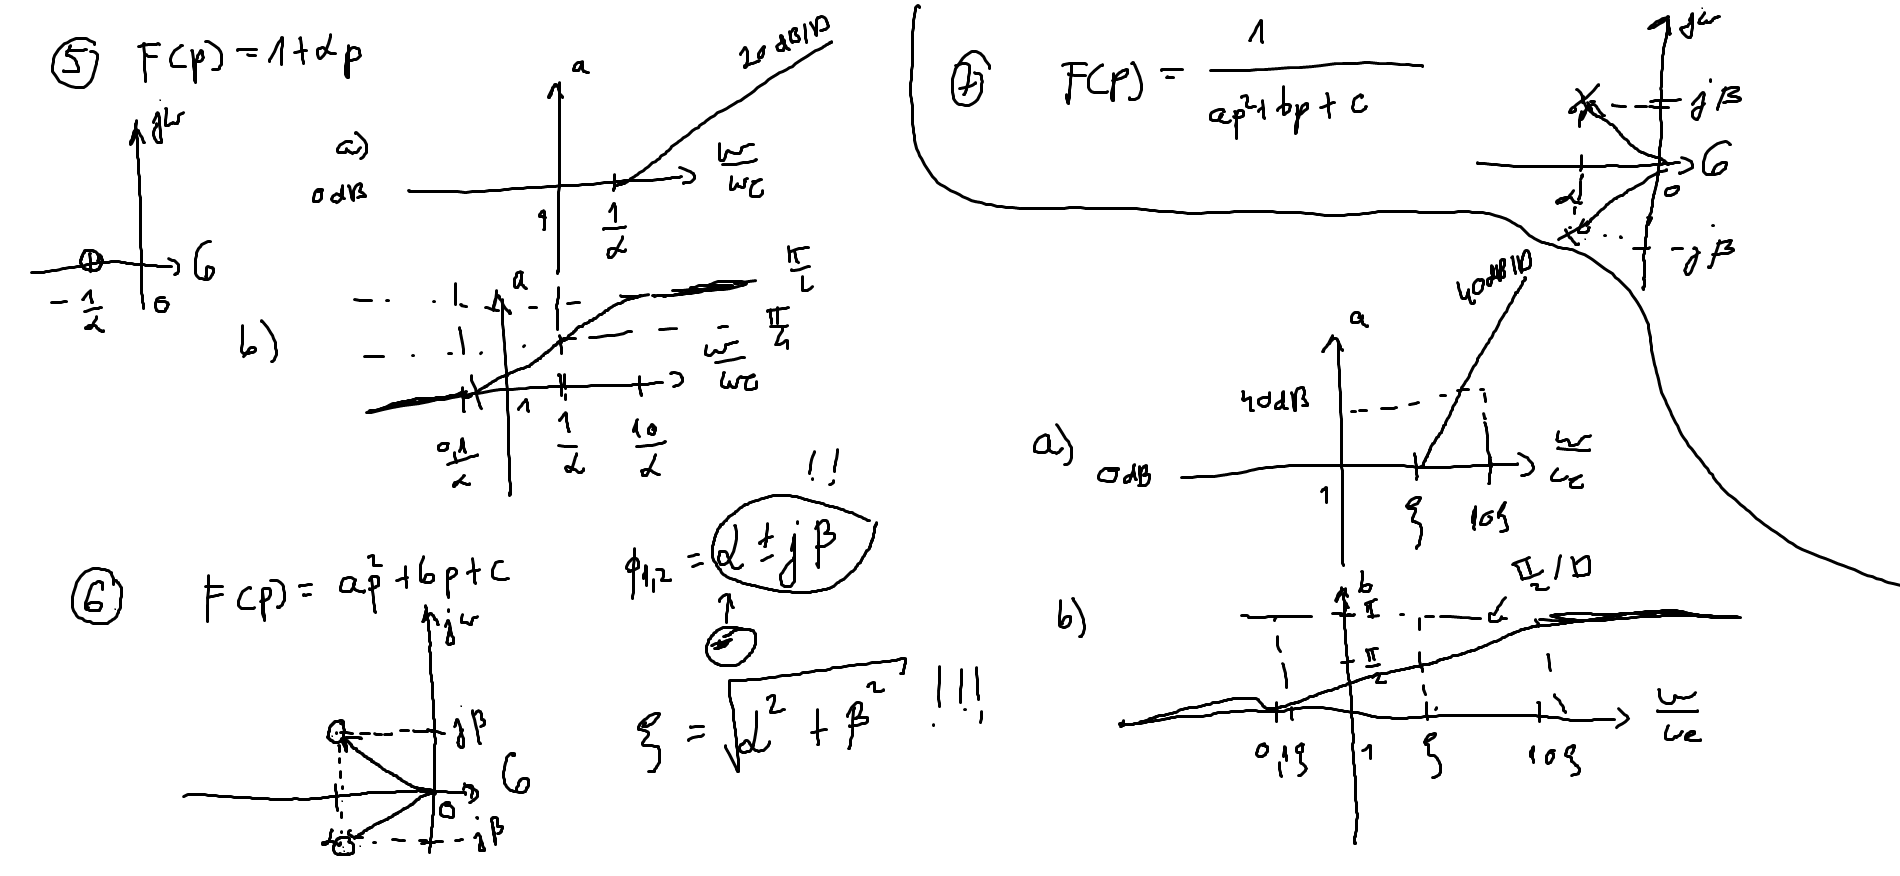 ⑤ F(p) = 1+αp
jω
σ
-1/α
0
a)
a
20 dB/D
0dB
1
1/α
ω/ωc
b)
a
π/2
π/4
ω/ωc
0,1/α
1
1/α
10/α
⑥ F(p) = ap²+bp+c
jω
jβ
σ
0
α
-jβ
p1,2 = α ± jβ
!!
-
ξ = √α² + β² !!!
⑦ F(p) = 1/ap²+bp+c
jω
jβ
σ
α
0
-jβ
a)
a
40dB/D
40dB
0dB
1
ξ
10ξ
ω/ωc
b)
b
π
π/2 /D
π/2
0,1ξ
1
ξ
10ξ
ω/ωc